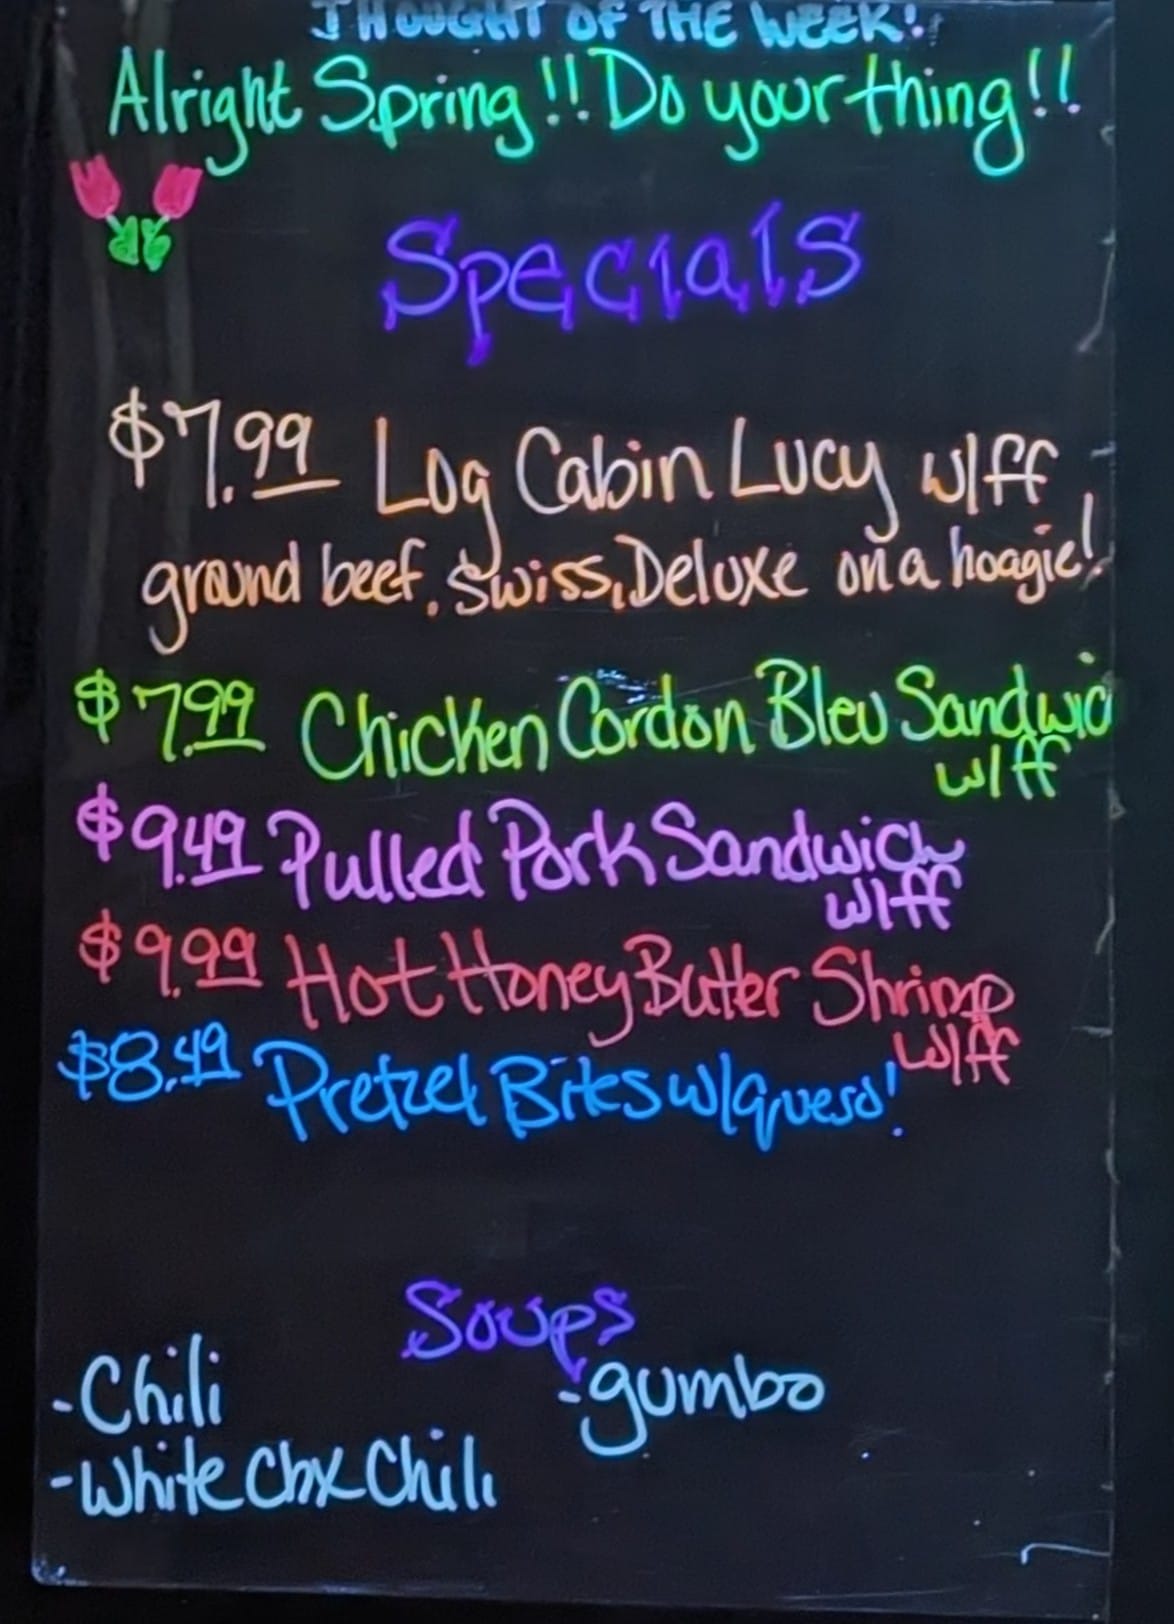 THOUGHT OF THE WEEK!
Alright Spring!! Do your thing!!
Specials
$7.99 Log Cabin Lucy w/ff
ground beef, Swiss, Deluxe on a hoagie!
$7.99 Chicken Cordon Bleu Sandwic
w/ff
$9.49 Pulled Pork Sandwich
w/ff
$9.99 Hot Honey Butter Shrimp
w/ff
$8.49 Pretzel Bites w/queso!
Soups
-Chili
-gumbo
-White Chx Chili